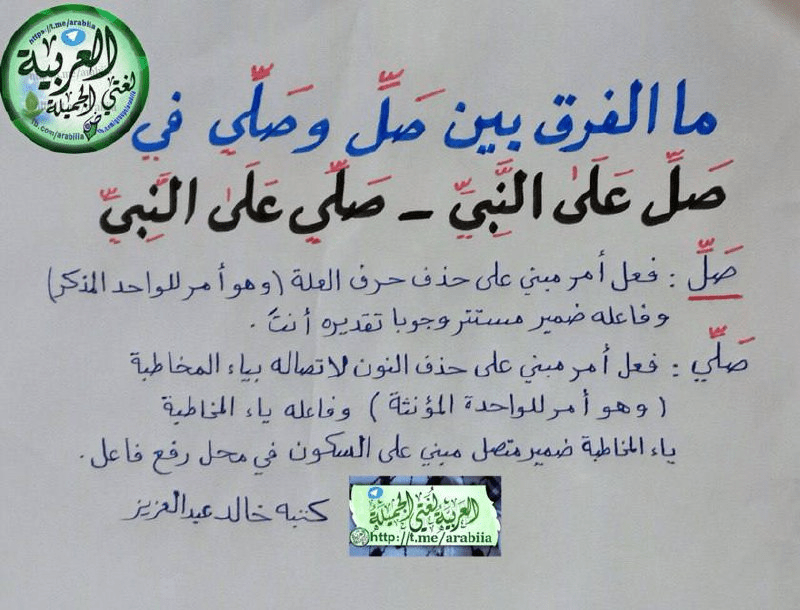 https://t.me/arabiia
العربية
لغتي الجميلة
fb.com/arabiia
ما الفرق بين صَلِّ وصَلِّي في
صَلِّ عَلَىٰ النَّبِيِّ – صَلِّي عَلَىٰ النَّبِيِّ
صَلِّ : فعل أمر مبني على حذف حرف العلة (وهو أمر للواحد المذكر)
وفاعله ضمير مستتر وجوبا تقديره أنتَ .
صَلِّي : فعل أمر مبني على حذف النون لاتصاله بياء المخاطبة
( وهو أمر للواحدة المؤنثة ) وفاعله ياء المخاطبة
ياء المخاطبة ضمير متصل مبني على السكون في محل رفع فاعل .
كتبه خالد عبدالعزيز
العربية لغتي الجميلة
http://t.me/arabiia